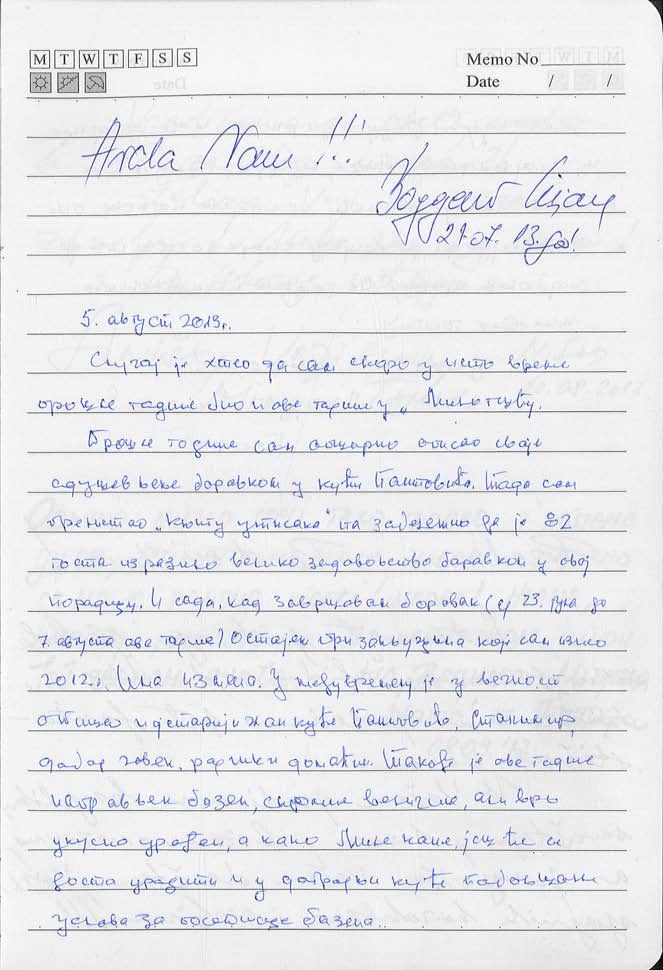 M T W T F S S
Memo No
Date / /
27.07.13.
5. август 2013.г.
Случај је хтео да сам скоро у исто време
прошле године био и ове године у
Прошле године сам опширно описао своје
одушевљење боравком у кући Тада сам
прелистао „књигу утисака“ па забележио да је 82
госта изразило велико задовољство боравком у овој
породици. И сада, кад завршавам боравак (од 23. јула до
7. августа ове године) Остајем при закључцима који сам изнео
2012. г. Има измена. У међувремену је у вечност
отишао најстарији члан куће Станимир,
добар човек, радишни домаћин. Такође је ове године
направљен базен, скромне величине, али врло
укусно урађен, а како Миле каже, још ће се
доста урадити и у догради куће побољшани
услова за посетиоце базена.